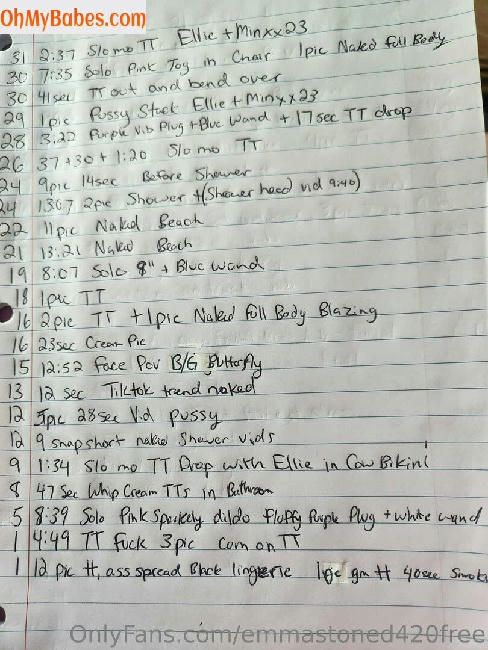 OhMyBabes.com
31 2:37 Slo mo TT Ellie + Minxx23
30 7:35 Solo Pink Toy in Chair 1pic Naked full Body
30 41sec TT out and bend over
29 1pic Pussy Stack Ellie + Minyx23
28 3:20 Purple Vib Plug + Blue Wand + 17sec TT drop
26 37 + 30 + 1:20 Slo mo TT
24 9pic 14sec Before Shower
24 13:07 2pic Shower + (Shower head vid 9:40)
22 11pic Naked Beach
21 13:21 Naked Beach
19 8:07 Solo 8" + Blue wand
18 1pic TT
16 2pic TT + 1pic Naked full Body Blazing
16 23sec Cream Pie
15 12:52 face Pov B/G Butterfly
13 12 sec Tiktok trend naked
12 5pic 28sec Vid pussy
12 9 snap short naked Shower vids
9 1:34 Slo mo TT Drop with Ellie in Cow Bikini
8 47 Sec Whip Cream TTs in Bathroom
5 8:39 Solo Pink Sparkely dildo fluffy Purple Plug + white wand
1 4:49 TT fuck 3pic cum on TT
1 12 pic tt, ass spread Black lingerie 40sec
OnlyFans.com/emmastoned420free